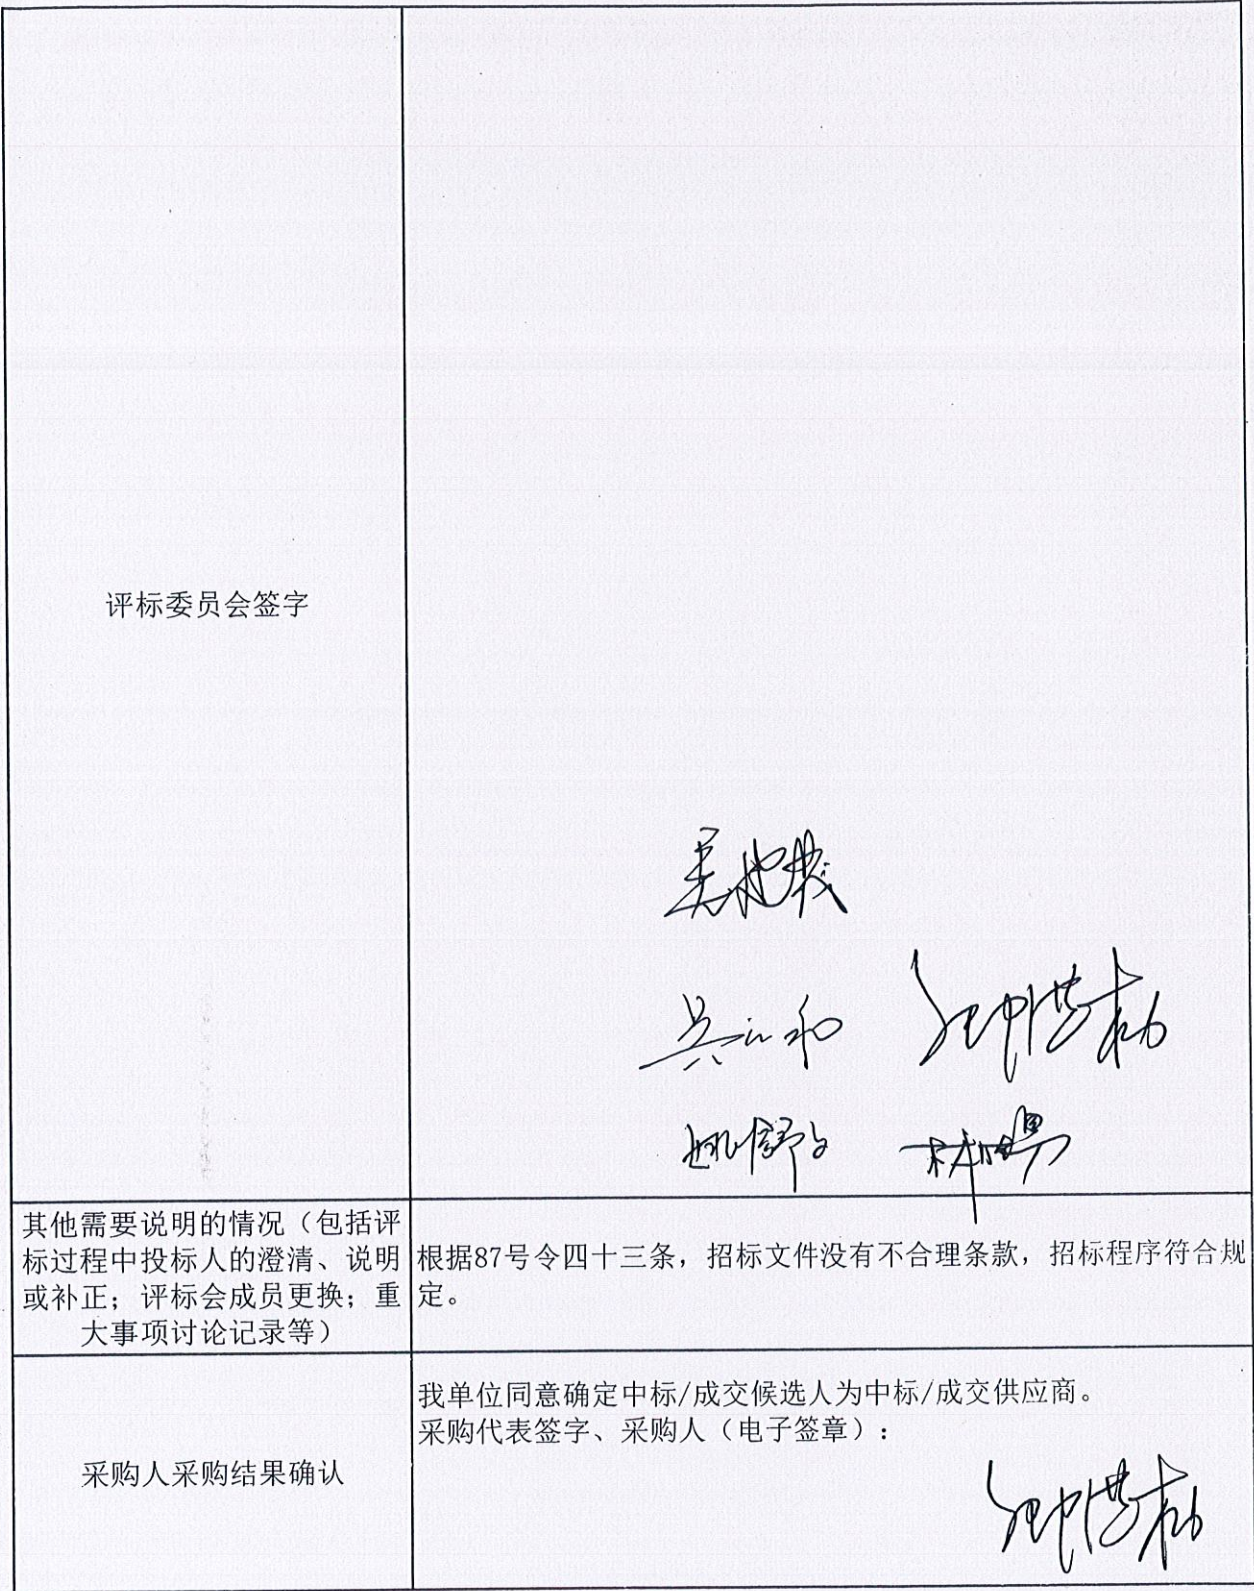 评标委员会签字
其他需要说明的情况（包括评
标过程中投标人的澄清、说明
或补正；评标会成员更换；重
大事项讨论记录等）
根据87号令四十三条，招标文件没有不合理条款，招标程序符合规
定。
采购人采购结果确认
我单位同意确定中标/成交候选人为中标/成交供应商。
采购代表签字、采购人（电子签章）：